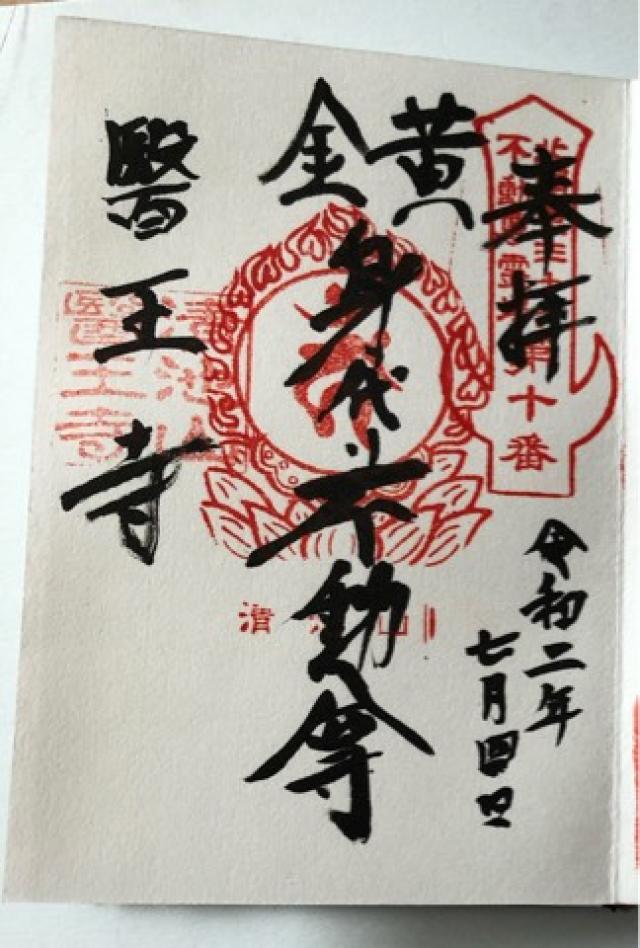 奉拝
不動尊霊場第十番
令和二年
七月四日
黄金身代不動尊
醫王寺
醫王寺